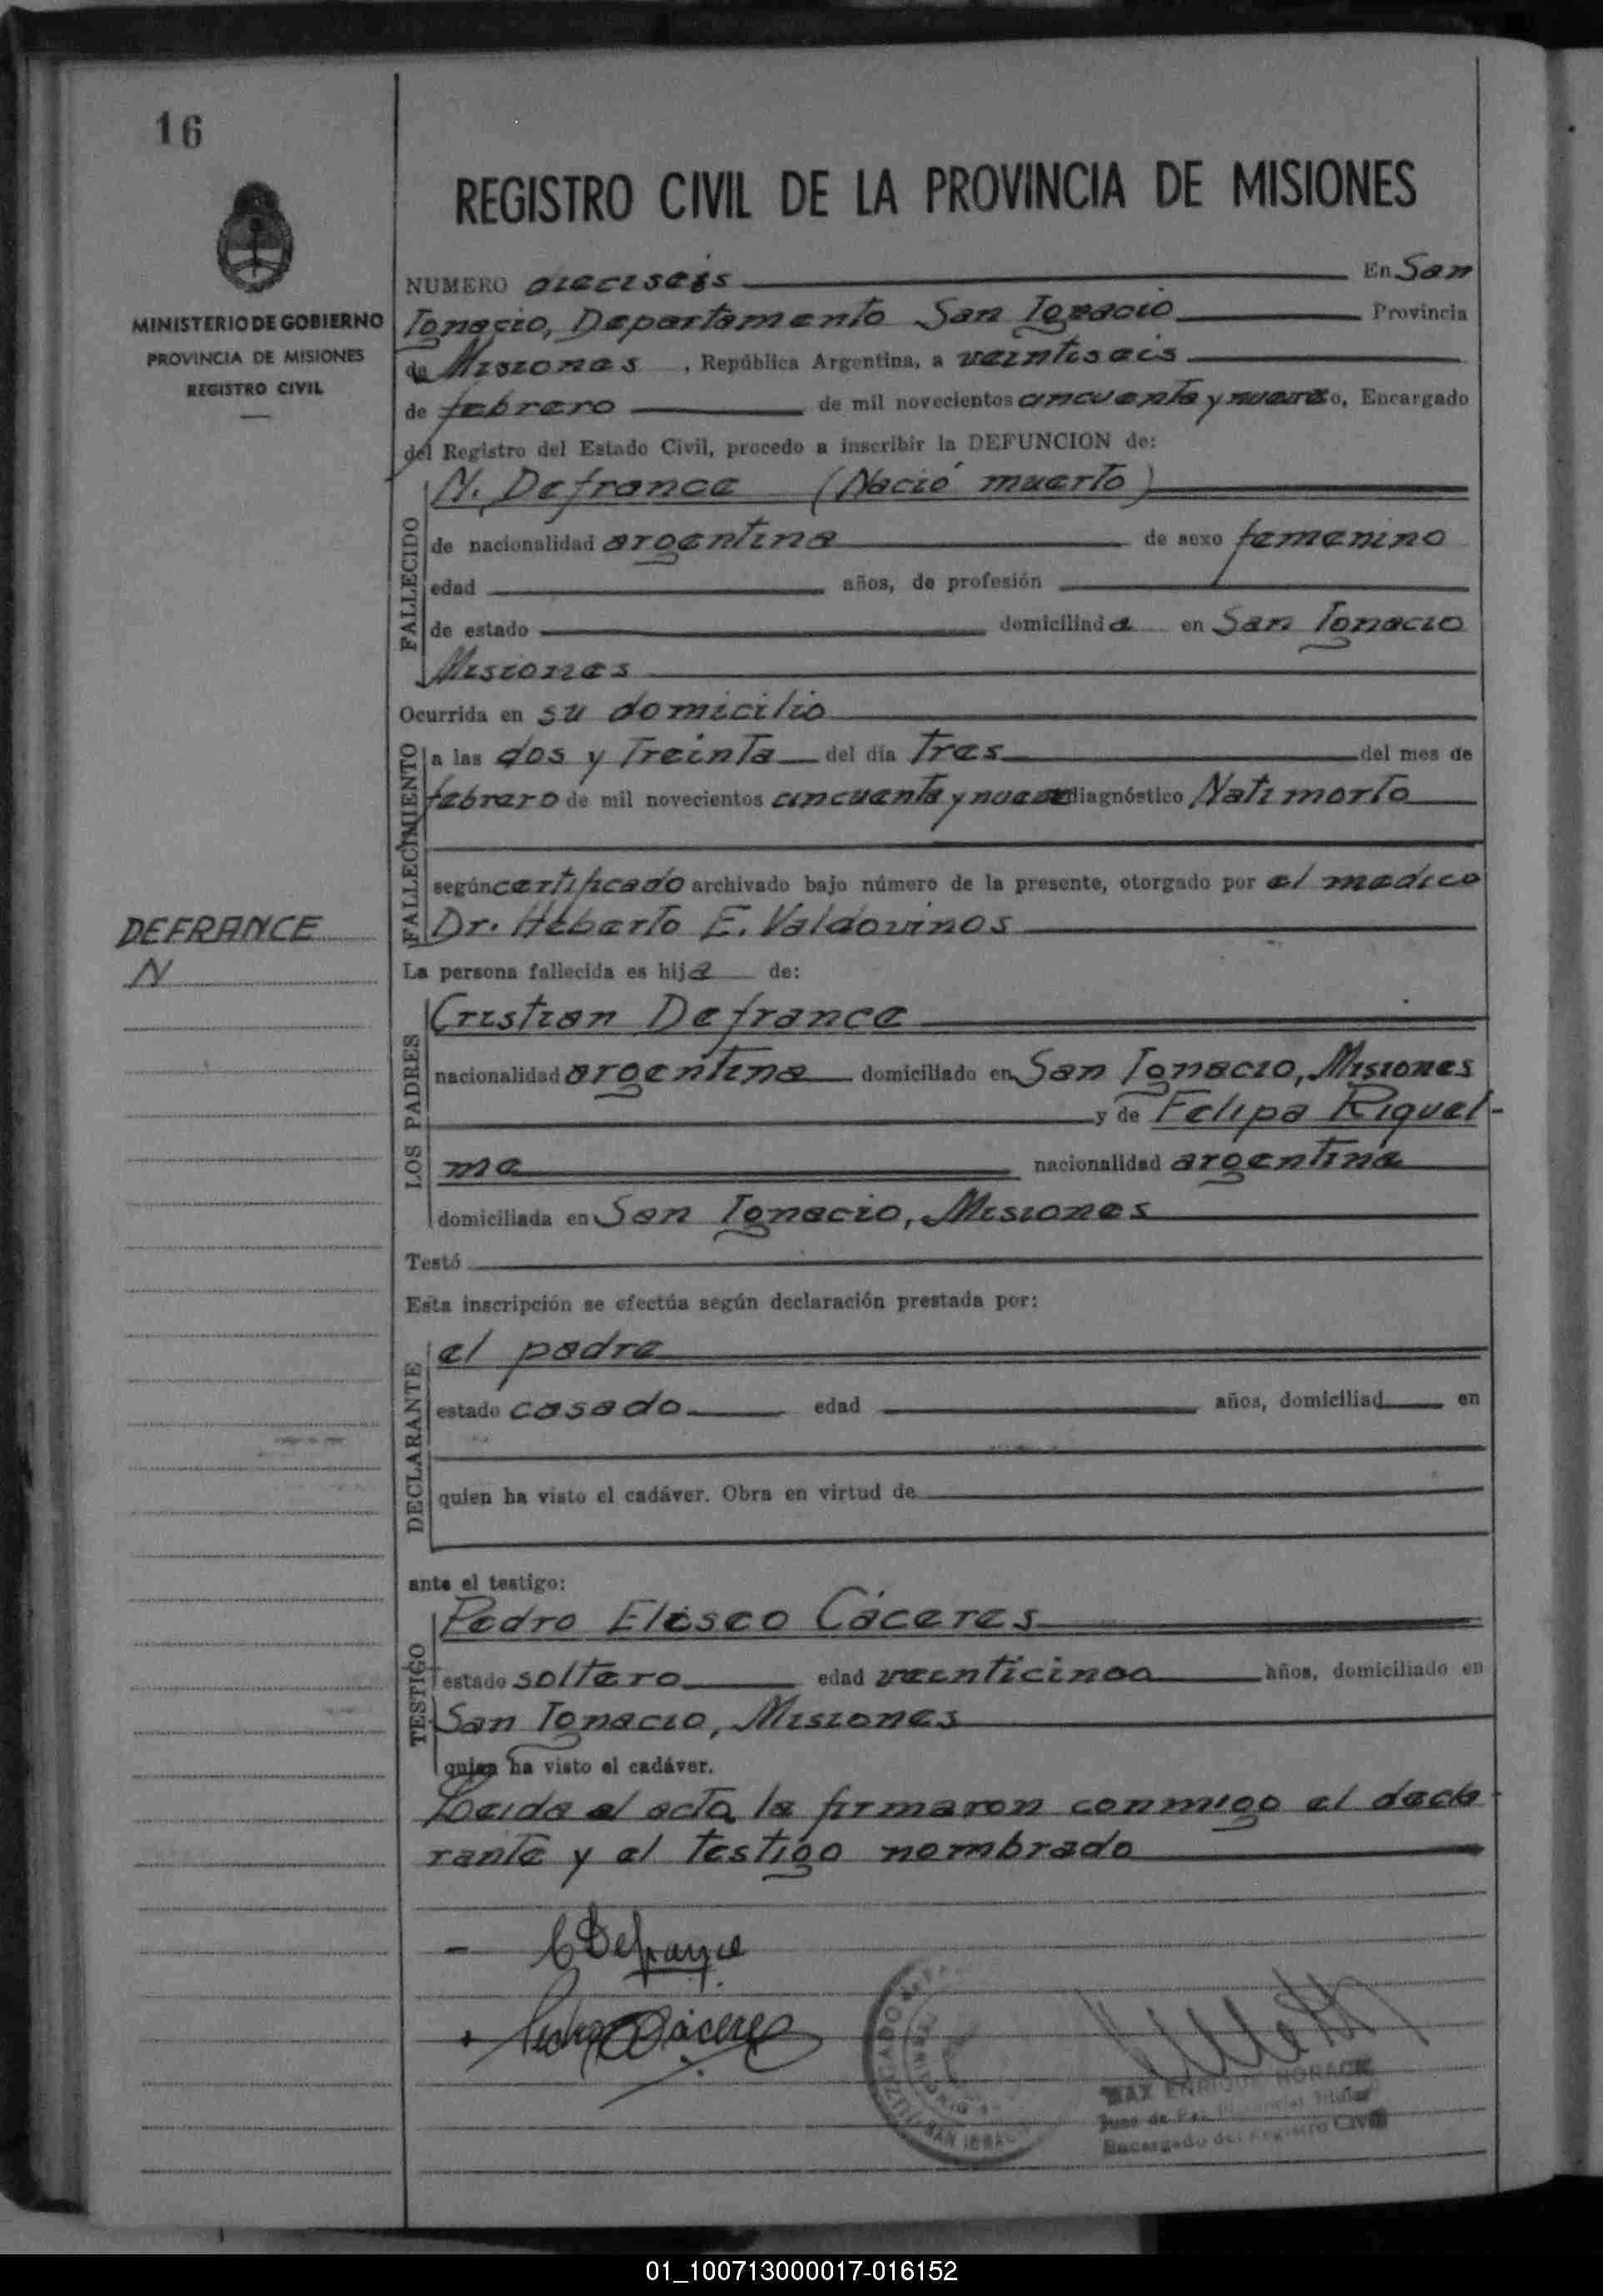 16
REGISTRO CIVIL DE LA PROVINCIA DE MISIONES
MINISTERIO DE GOBIERNO
PROVINCIA DE MISIONES
REGISTRO CIVIL
NUMERO dieciseis En San
Ignacio, Departamento San Ignacio Provincia
de Misiones , República Argentina, a veintiseis
de febrero de mil novecientos cincuenta y nueve o, Encargado
del Registro del Estado Civil, procedo a inscribir la DEFUNCION de:
FALLECIDO
N. Defrance (Nació muerto)
de nacionalidad argentina de sexo femenino
edad años, de profesión
de estado domiciliada en San Ignacio
Misiones
Ocurrida en su domicilio
FALLECIMIENTO
a las dos y treinta del día tres del mes de
febrero de mil novecientos cincuenta y nueve diagnóstico Natimorto
según certificado archivado bajo número de la presente, otorgado por el medico
Dr. Heberto E. Valdovinos
DEFRANCE
N
La persona fallecida es hija de:
LOS PADRES
Cristian Defrance
nacionalidad argentina domiciliado en San Ignacio, Misiones
y de Felipa Riquel-
me nacionalidad argentina
domiciliada en San Ignacio, Misiones
Testó
Esta inscripción se efectúa según declaración prestada por:
DECLARANTE
el padre
estado casado edad años, domiciliad en
quien ha visto el cadáver. Obra en virtud de
ante el testigo:
TESTIGO
Pedro Eliseo Cáceres
estado soltero edad veinticinco años, domiciliado en
San Ignacio, Misiones
quien ha visto el cadáver.
Leida el acta la firmaron conmigo el decla-
rante y el testigo nombrado
C Defrance
Pedro Cáceres
JUZGADO DE PAZ
SAN IGNACIO
MAX ENRIQUE HORACK
Juez de Paz Provincial Titular
Encargado del Registro Civil
01_100713000017-016152